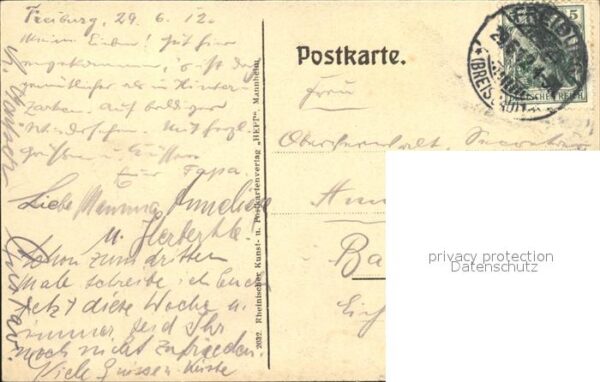 Freiburg, 29.6.12.
Meine Lieben! Gut hier
angekommen, 's ist da
gemütlicher als in Hinter-
zarten. Auf baldiges
Wiedersehen. Mit herzl.
Grüssen u. Küssen
Euer Papa.
Liebe Mamma, Anneliese
u. Herbertle!
Schon zum dritten
Male schreibe ich Euch
jetzt diese Woche u.
immer seid Ihr
noch nicht zufrieden.
Viele Grüsse
Gustav.
2032. Rheinischer Kunst- u. Postkartenverlag „HEPT“ Mannheim
Postkarte.
Frau
Ba
5
FREIBURG
(BREISGAU)
DEUTSCHES REICH
privacy protection
Datenschutz